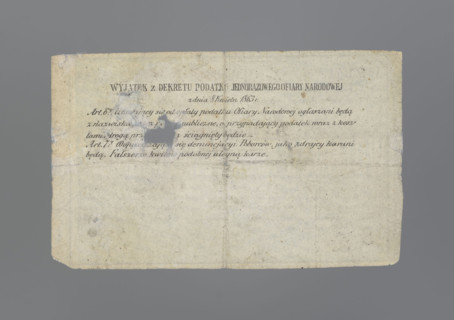 WYJĄTEK z DEKRETU PODATKU JEDNORAZOWEGO OFIARY NARODOWEJ
z dnia 8 Kwietn. 1863 r.
Art. 6º. się od opłaty podatku Ofiary Narodowej ogłaszani będą
z nazwiska, publiczne, a przypadający podatek wraz z karą
drogą ściągnięty będzie.
Art. 7º. się denuncjujący Poborców, jako zdrajcy karani
będą, Fałszerze kwitów podobnej ulegną karze.